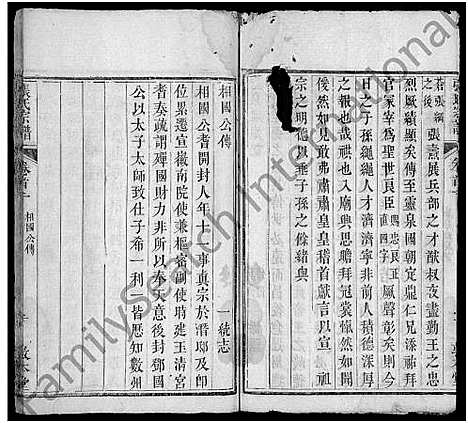 蒼張綱
之後
張燾展兵部之才猷叔夜盡勤王之忠
烈厥績顯矣傳至靈泉國朝定鼎仁兄深祥
官冢宰為聖世良臣
則忠良正直四字
風聲彰矣則今
日之子孫繩繩人才濟濟寧非前人積德深厚
之報也哉祺也入廟興思瞻拜冠裳愾然如聞
僾然如見敢不肅肅皇皇稽首獻言以以與
宗之明德以垂子孫之條緒與
相國公傳
一統志
相國公者開封人年十一事真宗於潛邸及即
位累遷宣徽南院使兼樞密副使時建玉清宮
者奏疏謂殫國財力非所以奉天意後封鄧國
公以太子太師致仕子希一利一皆歷知數州
張氏宗譜
卷首一
相國公傳
FamilySearch International